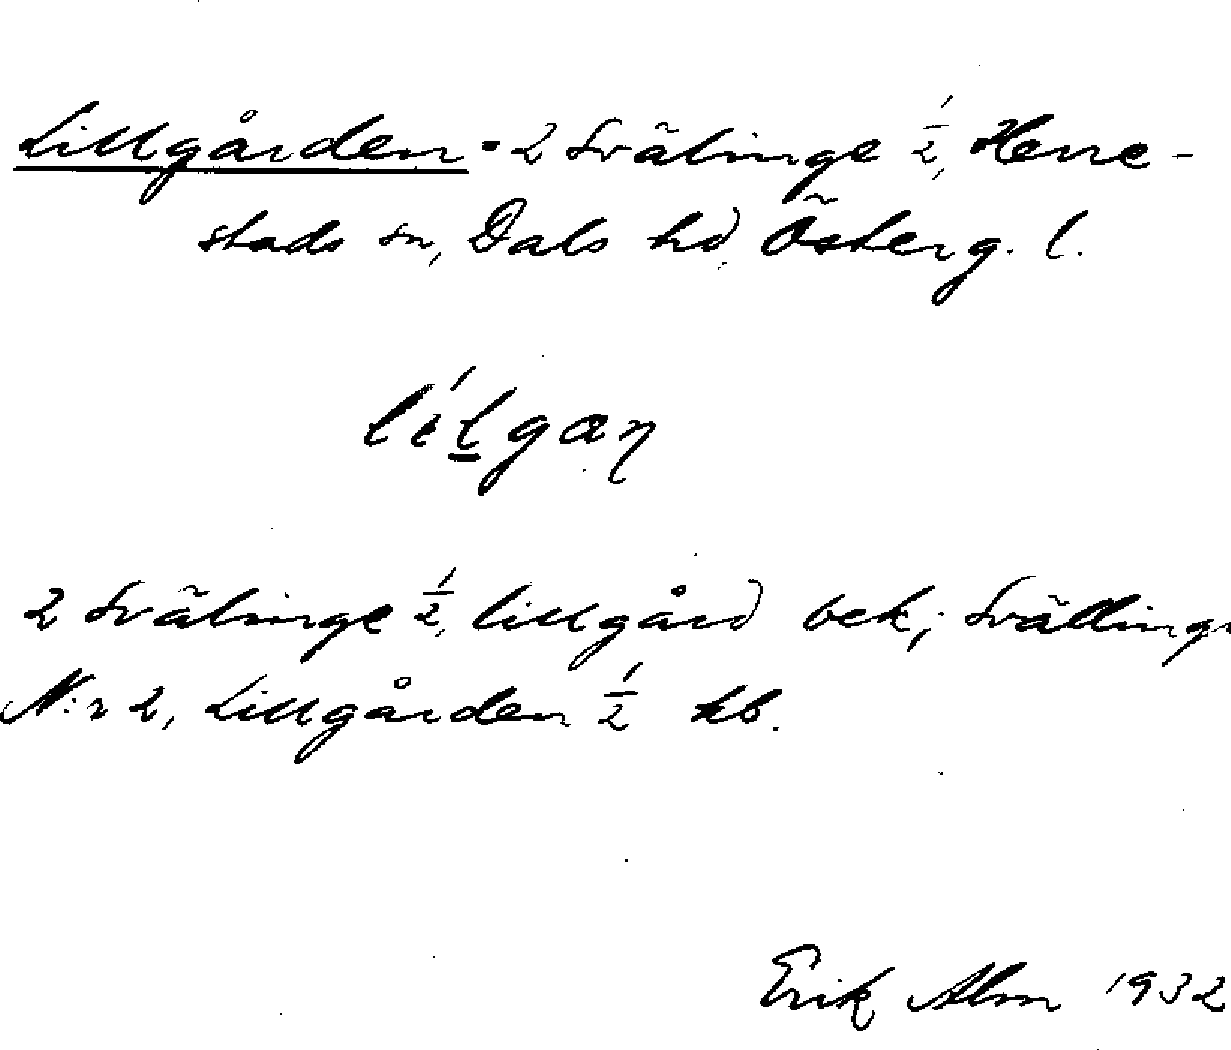 Lillgården = 2 Svälinge 1/2, Herre-
stads sn, Dals hd, Österg. l.
lílgaṇ
2 Svälinge 1/2, lillgård bek; Svällinge
N:r 2, Lillgården 1/2 hb.
Erik Alm 1932